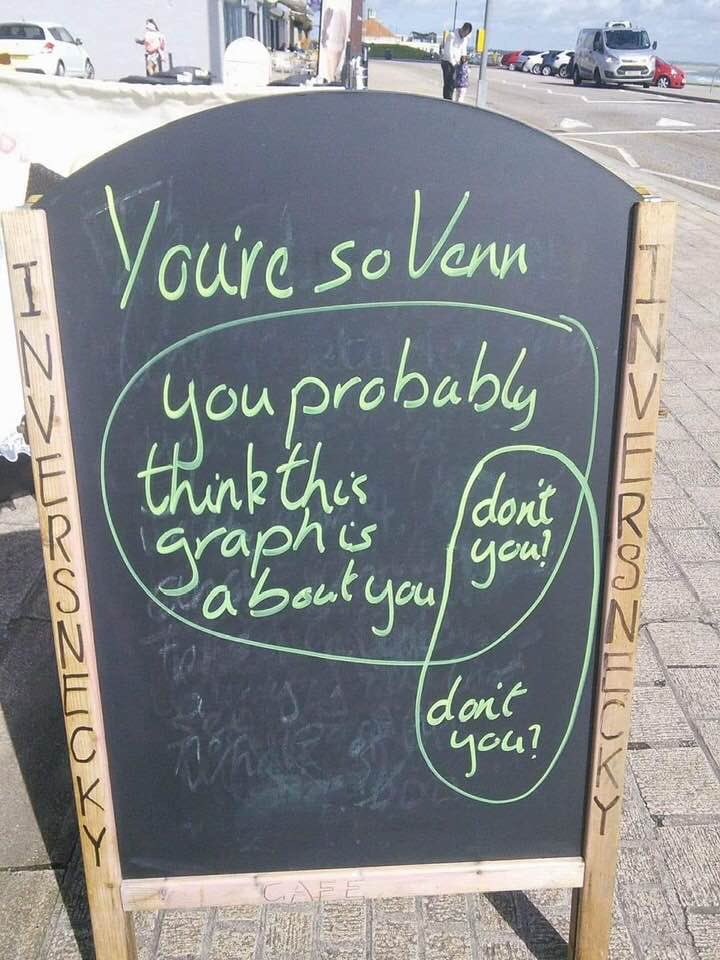 You're so Venn
you probably
think this
graph is
about you
don't
you?
don't
you?
INVERSNECKY
INVERSNECKY
CAFE